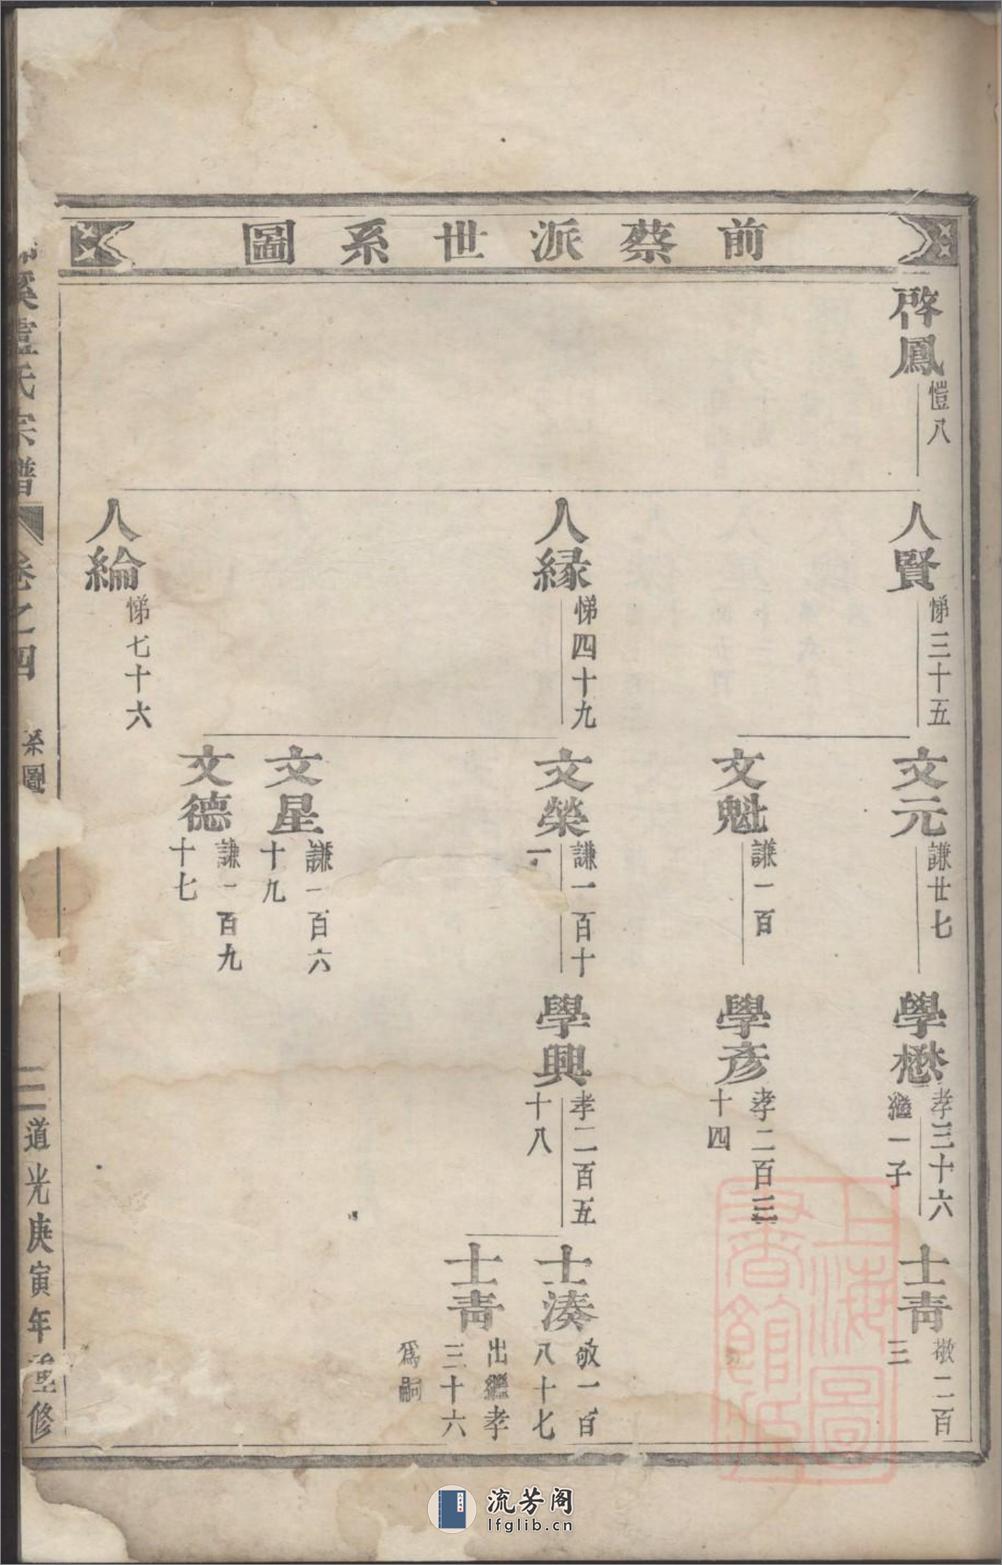 前蔡派世系圖
啓鳳
愷八
人賢
悌三十五
人緣
悌四十九
人綸
悌七十六
文元
謙廿七
文魁
謙一百
文榮
謙一百十
一
文星
謙一百六
十九
文德
謙一百九
十七
學懋
孝三十六
繼一子
學彥
孝二百三
十四
學興
孝二百五
十八
士靑
敬二百
三
士湊
敬一百
八十七
士靑
出繼孝
三十六
爲嗣
溪盧氏宗譜
卷之四
系圖
道光庚寅年重修
上海圖
書館藏
流芳阁
lfglib.cn